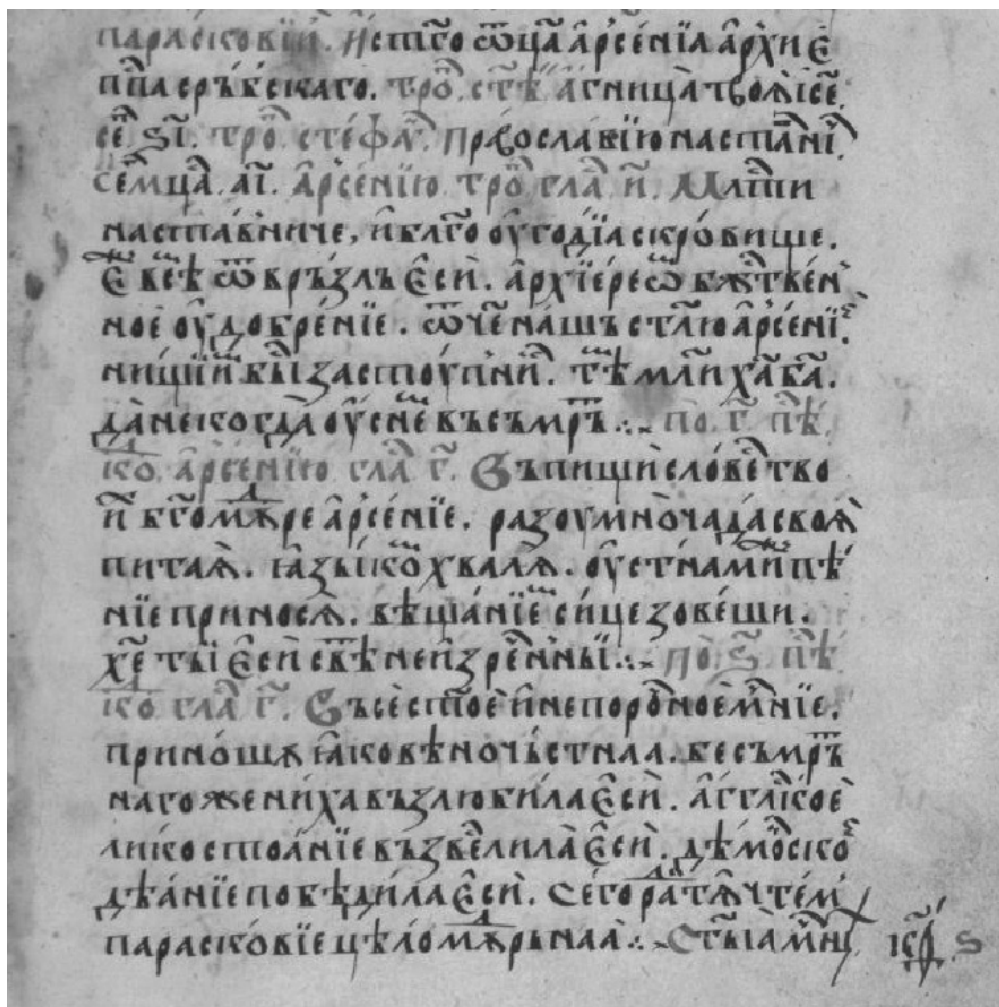 параскові́и. и҆ ст҃го ѿца̀ а҆рсе́нїа а҆рхи є҆
пⷭ҇па сръ́бскаго. тро̑. ст҃ѣ. а҆́гница твоѧ̀ і҆се҃.
се҃. ѕ҃і. тро̑. сте́фаⷩ. православїю настаⷡни҃.
се҃мца̀. а҃і. а҆рсе́нїю. тро̑ глаⷭ҇ и҃. Мⷧлⷭ҇ти
наста́вниче, и҆ бл҃го ᲂу҆го́дїа скро́вище.
є҆́же в сѣⷨ ѿвръ́злъ є҆сѝ. а҆рхїе́реѡⷨ бж҃твеⷩ
ное ᲂу҆добре́нїе. ѿч҃е на́шъ ст҃лю а҆рсе́нїе.
ни́щїиⷨ въ заступниⷱ. тѣⷨ моли х҃а б҃а.
да не когда̀ ᲂу҆сне́ⷨ въ съмрⷮъ. по. г҃. пѣⷭ҇.
коⷣ. а҆рсе́нїю глаⷭ҇ г҃. Въ пищи слове́ство
и҆ бг҃омⷣѫре а҆рсе́нїе. разоумно чада своѧ̀
пита́ѧ. ꙗ҆зы́коⷨ хва́лѧ. ᲂу҆стна́миже пѣ́
нїе приносѧ̀. вѣща́нїеⷨ си́це зовещи.
х҃е ты̀ є҆сѝ свѣⷮ неизрⷱе́нны. по. ѕ҃. пѣⷭ҇
коⷣ. глаⷭ҇ г҃. Въсе ст҃ое и҆ непоро́чное мⷧнїе.
прино́щѫ ꙗ҆ко вѣно чьстнаа. бесъмрⷮъ
наго жениха възлюбила є҆сѝ. а҆гг҃лское
ликостоа́нїе възвⷭ҇елила є҆сѝ. дѣмоⷩско
дѣа́нїе побѣди́ла є҆сѝ. сего ра́ди тѧ чтеⷨ
параскові́е цѣломⷣѫрьнаа. Ст҃ыѧ мⷱнц҃